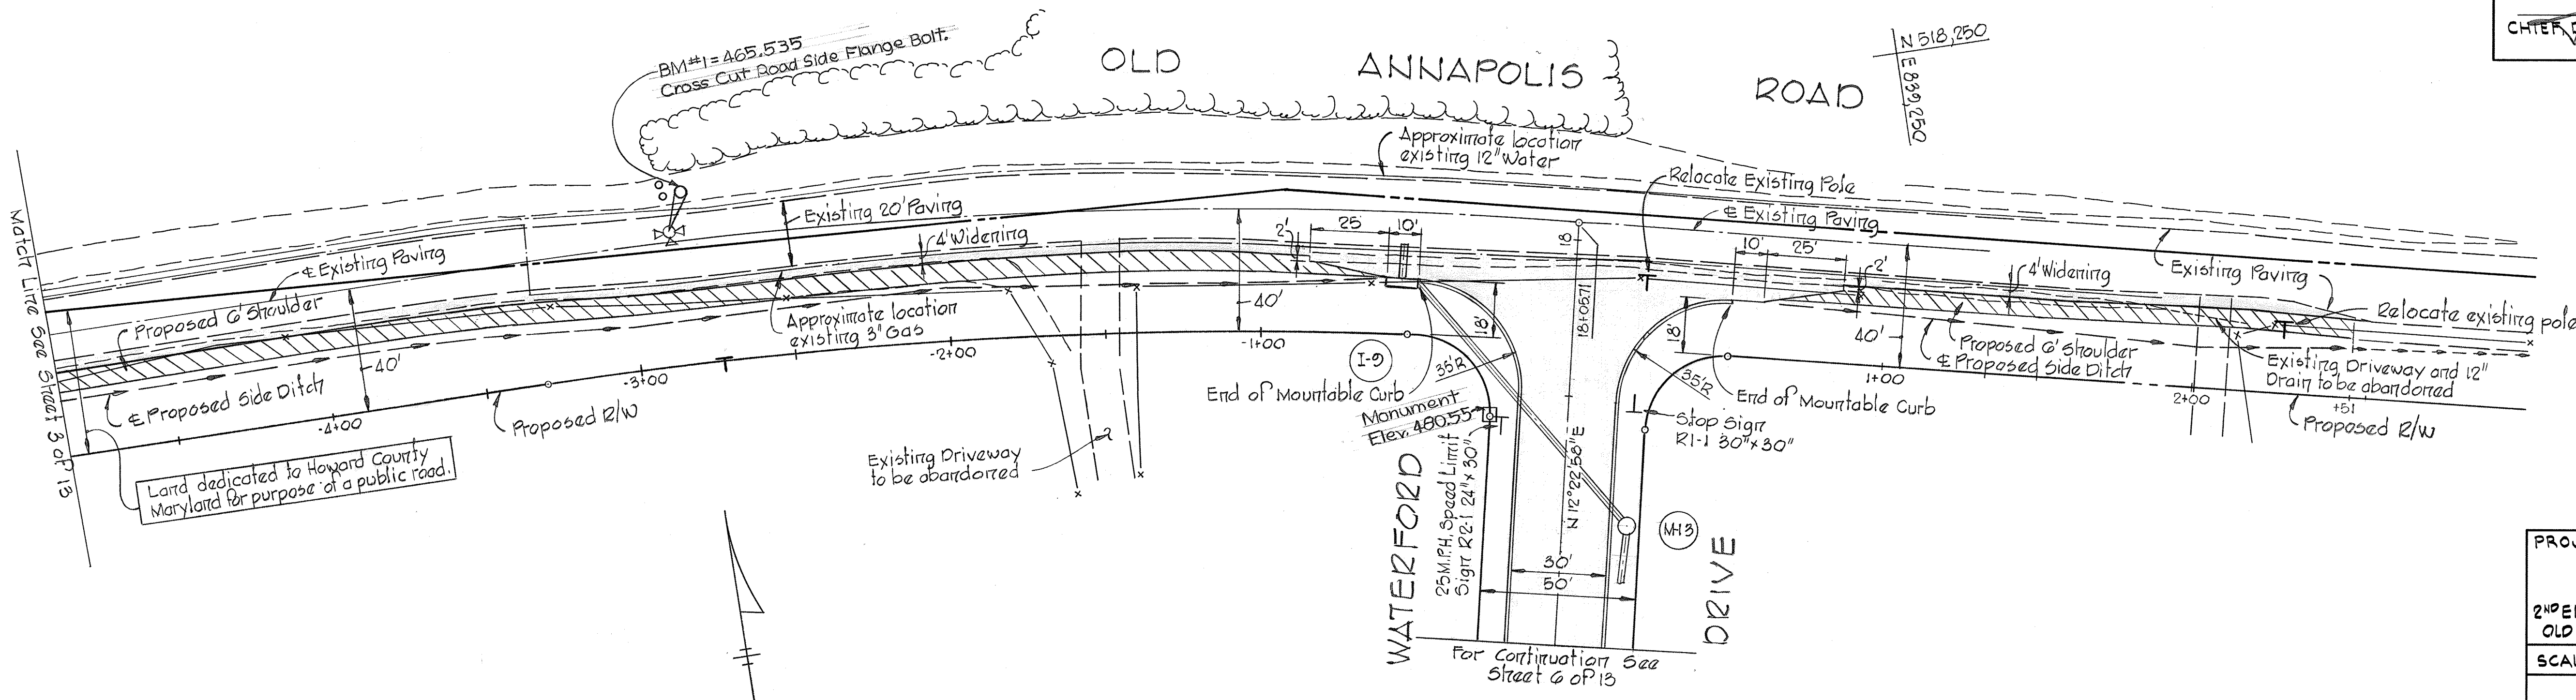 BM#1=465.535
Cross Cut Road Side Flange Bolt.
OLD ANNAPOLIS ROAD
N 518,250
E 839,250
Approximate location
existing 12" Water
Relocate Existing Pole
℄ Existing Paving
Existing 20' Paving
4' Widening
2'
25'
10'
18
18+05.71
10'
25'
2'
4' Widening
Existing Paving
Relocate existing pole
Match Line See Sheet 3 of 13
℄ Existing Paving
Proposed 6' Shoulder
40'
℄ Proposed Side Ditch
Approximate location
existing 3" Gas
40'
18'
18'
40'
Proposed 6' Shoulder
℄ Proposed Side Ditch
Existing Driveway and 12"
Drain to be abandoned
-4+00
-3+00
-2+00
-1+00
1+00
2+00
+51
Proposed R/W
Proposed R/W
I-9
35'R
35'R
End of Mountable Curb
End of Mountable Curb
Monument
Elev. 480.55
Stop Sign
R1-1 30"x30"
Land dedicated to Howard County
Maryland for purpose of a public road.
Existing Driveway
to be abandoned
25 M.P.H. Speed Limit
Sign R2-1 24"x30"
N 12°22'58" E
M-13
30'
50'
WATERFORD DRIVE
For Continuation See
Sheet 6 of 13
2ND
OLD